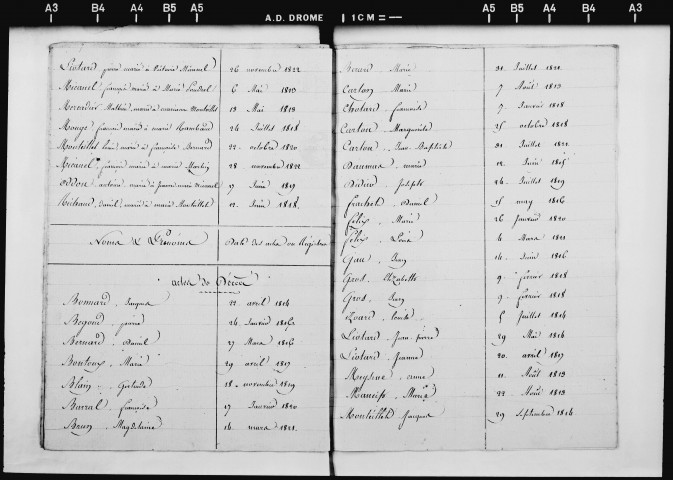 A3 B4 A4 B5 A5 A.D. DROME 1CM A5 B5 A4 B4 A3
Liotard pierre marié à Victoire Micanel 26 novembre 1822
Micanel françois marié à Marie 6 Mai 1813
Mercadier Mathieu marié à marianne Monteillet 13 Mai 1813
Mouge françois marié à marie Rambaud 24 Juillet 1818
Monteillet Louis marié à françoise Bernard 22 octobre 1820
Micanel françois marié à marie 28 novembre 1822
Oddon antoine marié à 17 Juin 1819
daniel marié à marie Monteillet 12 Juin 1818
Noms & Prénoms Date des actes ou Registres
actes de Décès
Bonnard Jacques 22 avril 1814
Begoud pierre 26 Janvier 1816
Bernard Daniel 27 Mars 1816
Bontoux Marie 29 avril 1817
Blain Gertrude 18 novembre 1819
Barral françoise 17 Janvier 1820
Brun Magdelaine 16 mars 1821
Marie 31 Juillet 1821
Carlon Marie 7 Août 1813
Chotard françoise 7 Janvier 1818
Carlon Marguerite 25 octobre 1818
Carlon Jean Baptiste 31 Juillet 1822
Daumas marie 12 Juin 1815
Didier Joseph 26 Juillet 1819
Frachet Daniel 25 may 1816
Felix Marie 26 Janvier 1820
Felix Louis 6 Mars 1821
Gau Jean 14 Juin 1816
Gros Elizabeth 9 février 1818
Gros Jean 9 février 1818
Izoard 5 Juillet 1814
Liotard Jean pierre 29 Mai 1814
Liotard Jeanne 20 avril 1817
Meyssene anne 11 Août 1813
Marie 22 Août 1813
Monteillet Jacques 29 Septembre 1814